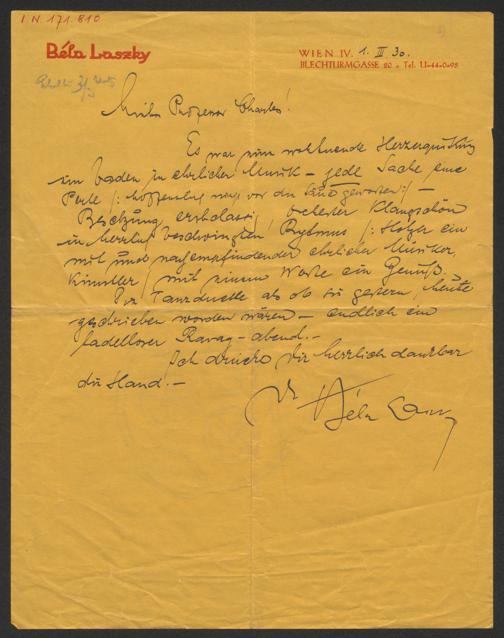 I N 171.810
Béla Laszky
WIEN IV. 1. III 30.
BLECHTURMGASSE 20 - Tel. U-44-0-95
Professor Charles!
Es war eine wohltuende Herzerquickung
im baden in ehrlicher Musik – jede Sache eine
Perle /: hoffentlich nicht vor die Säue geworfen :/ –
Besetzung erstklassig, Orchester klangschön
in herrlich beschwingtem Rythmus /: Holzer ein
mit und nachempfindender ehrlicher Musiker,
Künstler / mit einem Worte ein Genuß.
Die Tanzduette als ob sie gestern, heute
geschrieben worden wären – endlich ein
tadelloser Ravag-abend. –
Ich drücke Dir herzlich dankbar
die Hand! –
Dr
Béla Laszky